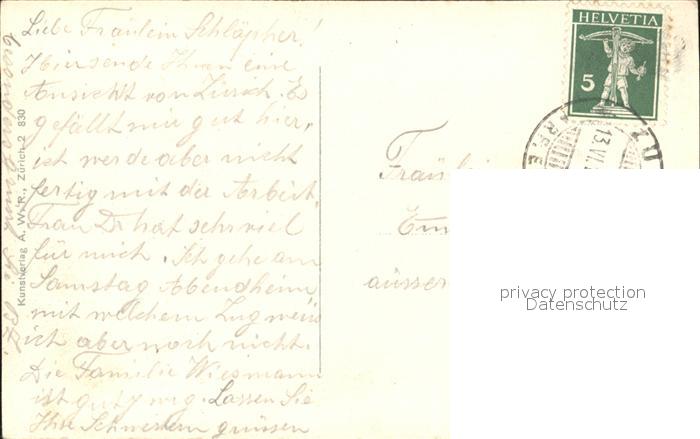 Liebe Fräulein Schläpfer!
Hiersende Ihnen eine
Ansicht von Zürich. Es
gefällt mir gut hier,
ist werde aber nicht
fertig mit der Arbeit.
Frau Dr hat sehr viel
für mich. Ich gehe am
Samstag Abend heim
mit welchem Zug weiss
ich aber noch nicht.
Die Familie Wiesmann
ist gut zweg. Lassen Sie
Ihre Schwestern grüssen
Kunstverlag A. W. R., Zürich 2 830
HELVETIA
5
ZU
13.VI.
Fräulein
äusser
privacy protection
Datenschutz